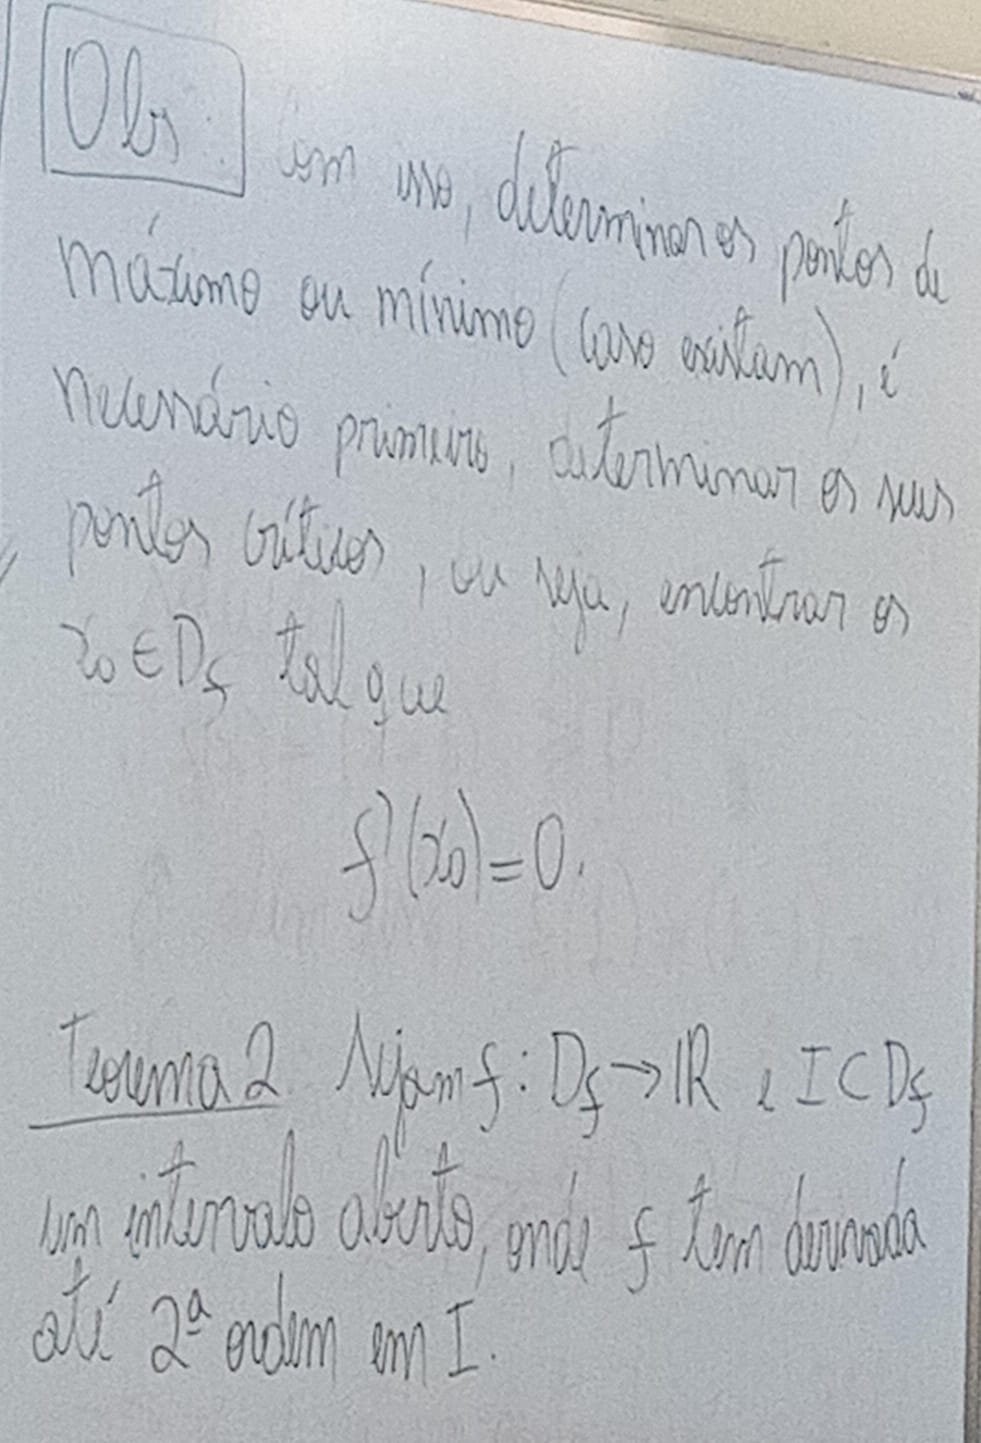 Obs: Com isso, determinar os pontos de
máximo ou mínimo (caso existam), é
necessário primeiro, determinar os seus
pontos críticos, ou seja, encontrar os
x₀ ∈ D_f tal que
f'(x₀) = 0.
Teorema 2 Sejam f: D_f → ℝ e I ⊂ D_f
um intervalo aberto, onde f tem derivada
até 2ª ordem em I.